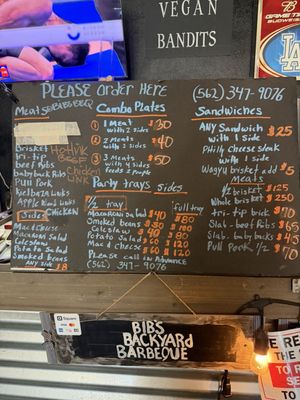 VEGAN
BANDITS
GAME TI
BUDWEISER
LA
PLEASE Order Here
(562) 347-9076
Meats
Brisket
tri-tip
beef Ribs
babyback Ribs
Pull Pork
Kielbasa Links
Apple Kind Links
Hotlink
BEEF
Chicken
Link
Chicken
Sides
Mac & Cheese
Macaroni Salad
Coleslaw
Potato Salad
Smoked beans
Any side $8
Combo Plates
1 1 meat $30
with 2 sides
2 2 meats $40
with 3 sides
3 3 Meats $50
with 4 sides
Feeds 2 people
Party trays Sides
1/2 tray full tray
Macaroni Salad $40 $80
Smoked beans $50 $90
Coleslaw $40 $80
Potato Salad $60 $120
Mac & Cheese $60 $120
Please call in Advance
(562) 347-9076
Sandwiches
Any Sandwich $25
with 1 side
Philly Cheese Steak
with 1 side
Wagyu brisket add $5
Meats
1/2 brisket $125
Whole brisket $250
tri-tip brick $70
Slab-beef Ribs $65
Slab-babybacks $45
Pull Pork 1/2 $70
Square
BIB'S
BACKYARD
BARBEQUE